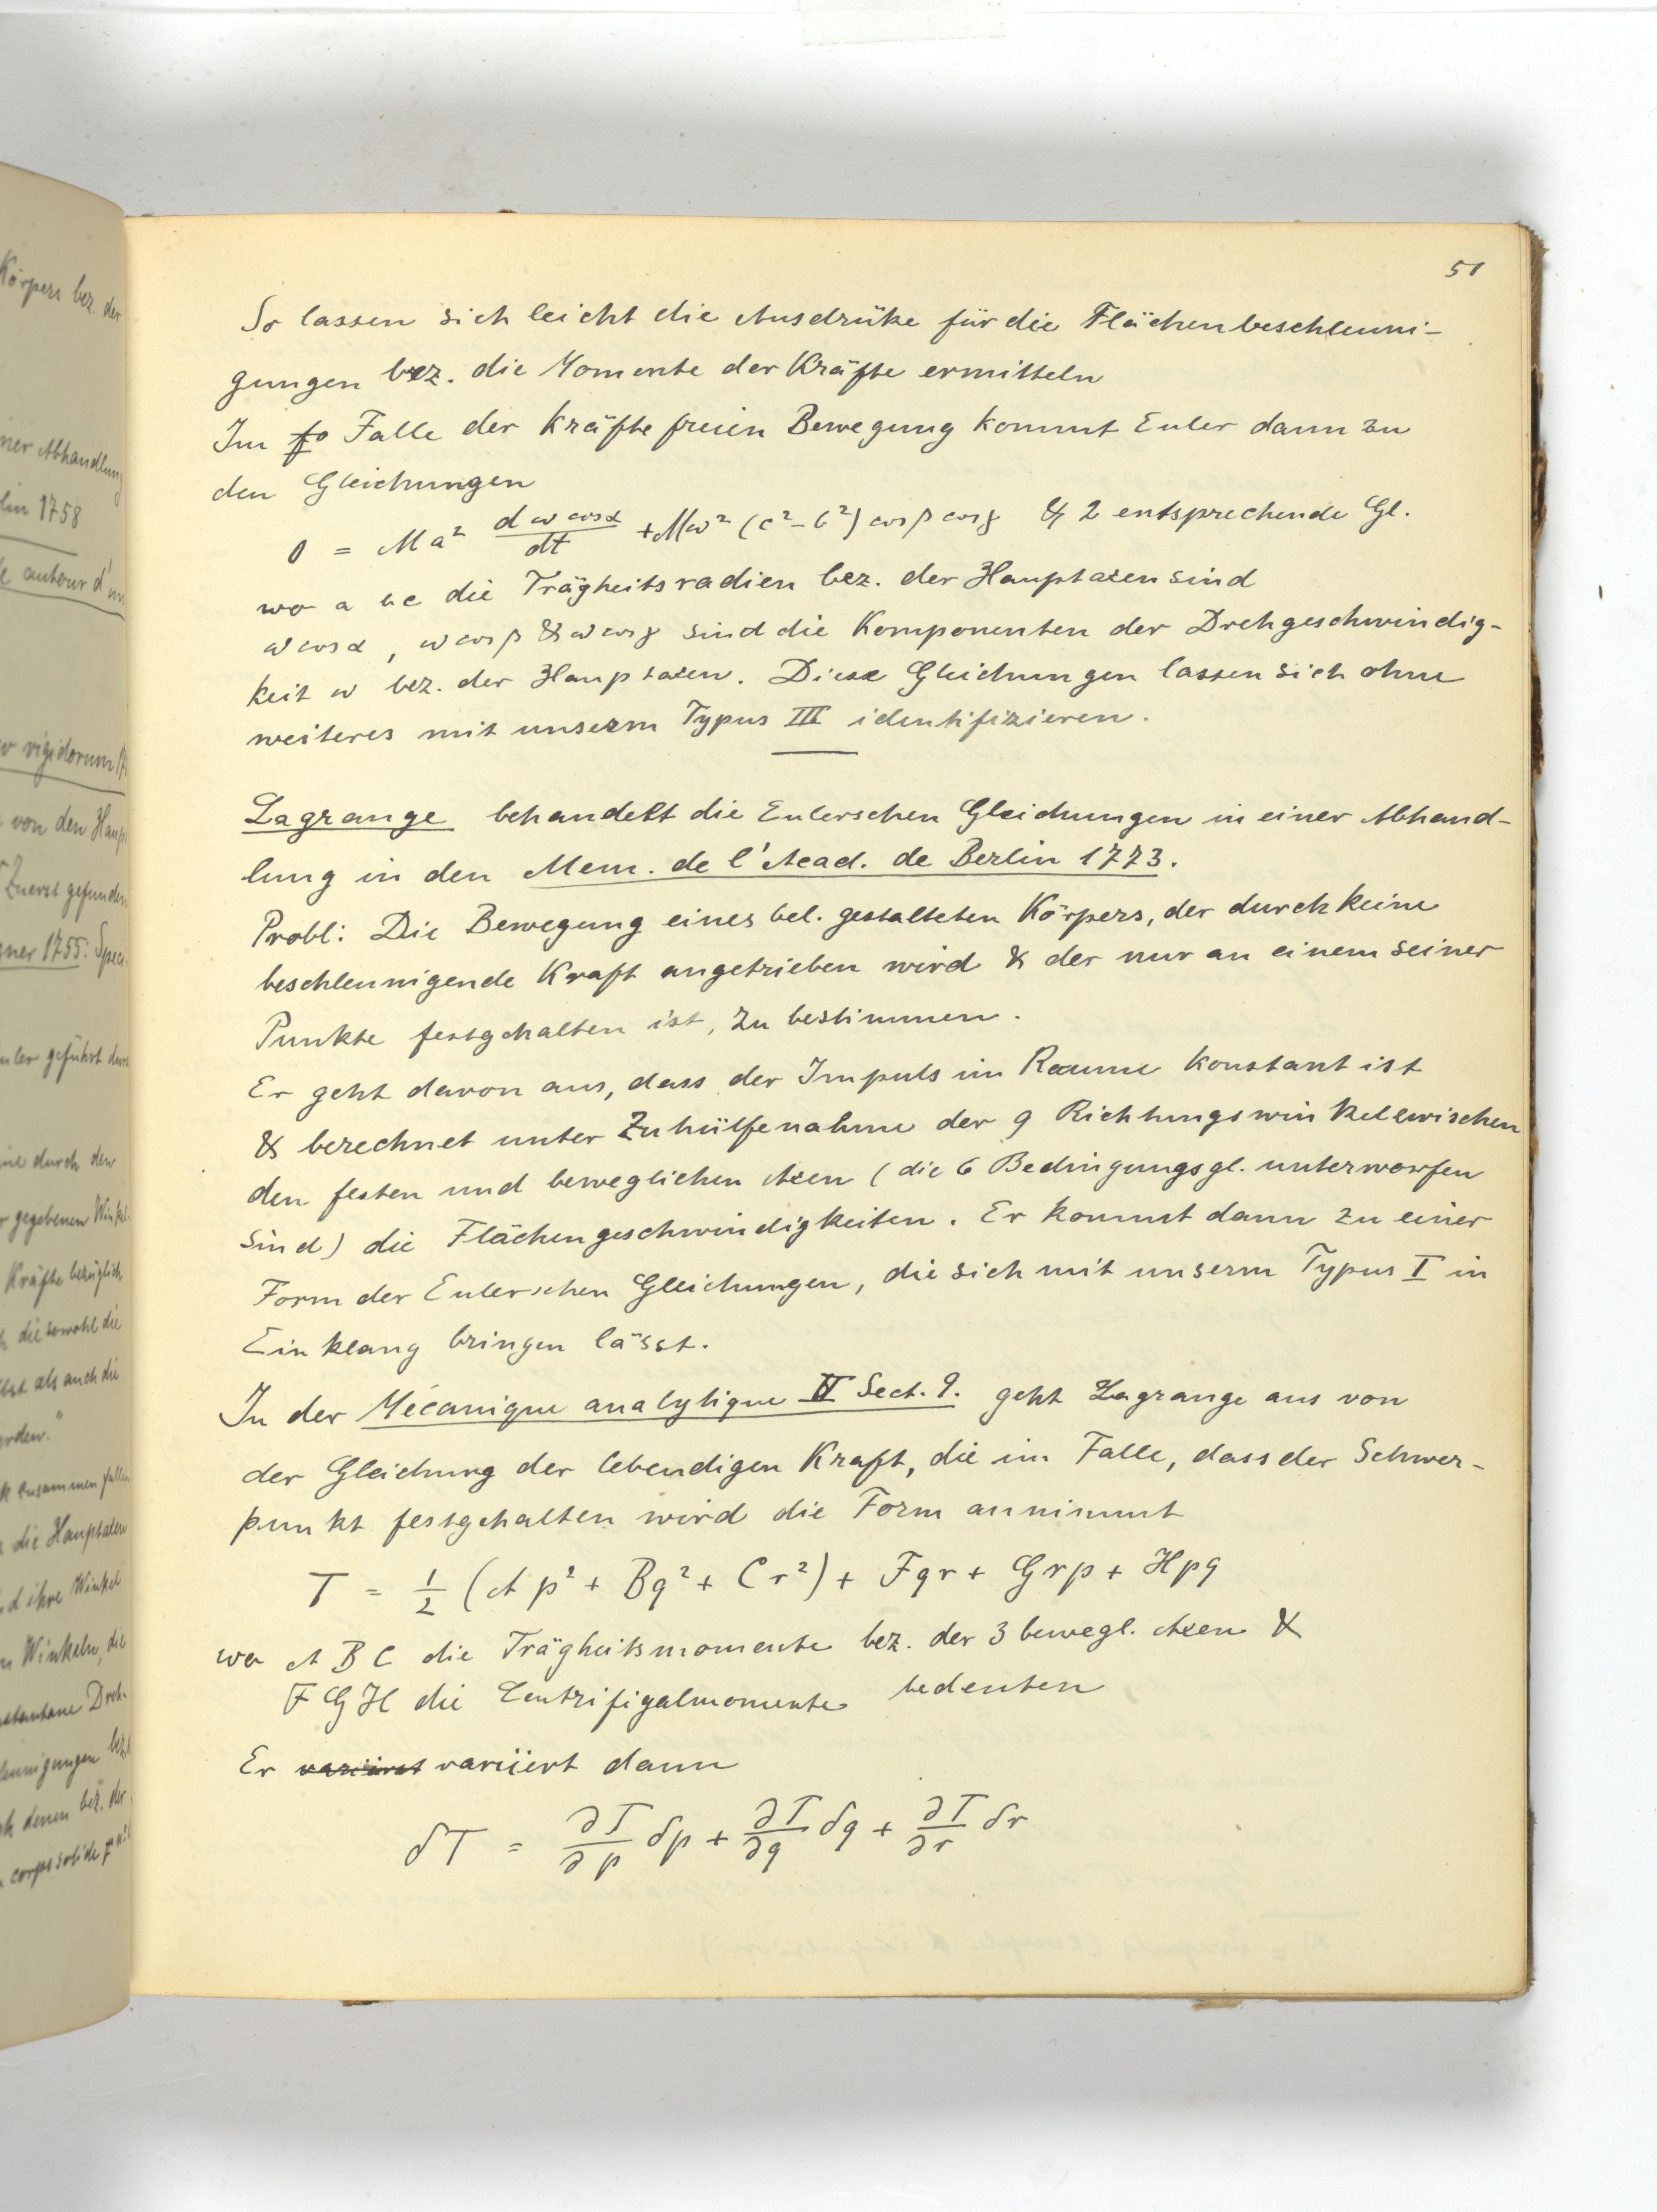 51
So lassen sich leicht die Ausdrüke für die Flächenbeschleuni-
gungen bez. die Momente der Kräfte ermitteln
Im Falle der Kräfte freien Bewegung kommt Euler dann zu
den Gleichungen
0 = Ma² d ω cos α / dt + Mω² (c² - b²) cos β cos γ & 2 entsprechende Gl.
wo a b c die Trägheitsradien bez. der Hauptaxen sind
ω cos α, ω cos β & ω cos γ sind die Komponenten der Drehgeschwindig-
keit ω bez. der Hauptaxen. Diese Gleichungen lassen sich ohne
weiteres mit unserm Typus III identifizieren.
Lagrange behandelt die Eulerschen Gleichungen in einer Abhand-
lung in den Mem. de l'Acad. de Berlin 1773.
Probl: Die Bewegung eines bel. gestalteten Körpers, der durch keine
beschleunigende Kraft angetrieben wird & der nur an einem seiner
Punkte festgehalten ist, zu bestimmen.
Er geht davon aus, dass der Impuls im Raume konstant ist
& berechnet unter Zuhülfenahme der 9 Richtungswinkel zwischen
den festen und beweglichen Axen (die 6 Bedingungsgl. unterworfen
sind) die Flächengeschwindigkeiten. Er kommt dann zu einer
Form der Eulerschen Gleichungen, die sich mit unserm Typus I in
Einklang bringen lässt.
In der Mécanique analytique II Sect. 9. geht Lagrange aus von
der Gleichung der lebendigen Kraft, die im Falle, dass der Schwer-
punkt festgehalten wird die Form annimmt
T = 1/2 (A p² + B q² + C r²) + F q r + G r p + H p q
wo A B C die Trägheitsmomente bez. der 3 bewegl. Axen &
F G H die Centrifigalmomente bedeuten
Er variiert variiert dann
δT = ∂T/∂p δp + ∂T/∂q δq + ∂T/∂r δr